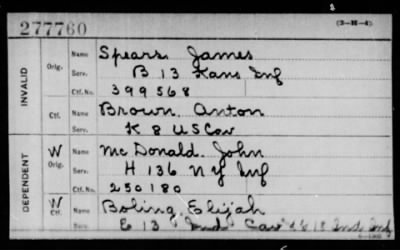 277760 (3-H-4)
INVALID
Orig. Name Spears James
Serv. B 13 Kans Inf
Ctf. No. 399568
Ctf. Name Brown. Anton
Serv. K 8 US Cav
DEPENDENT
W Orig. Name McDonald. John
Serv. H 136 N Y Inf
Ctf. No. 250180
W Ctf. Name Boling. Elijah
Serv. E 13 Ind Cav Ind Inf